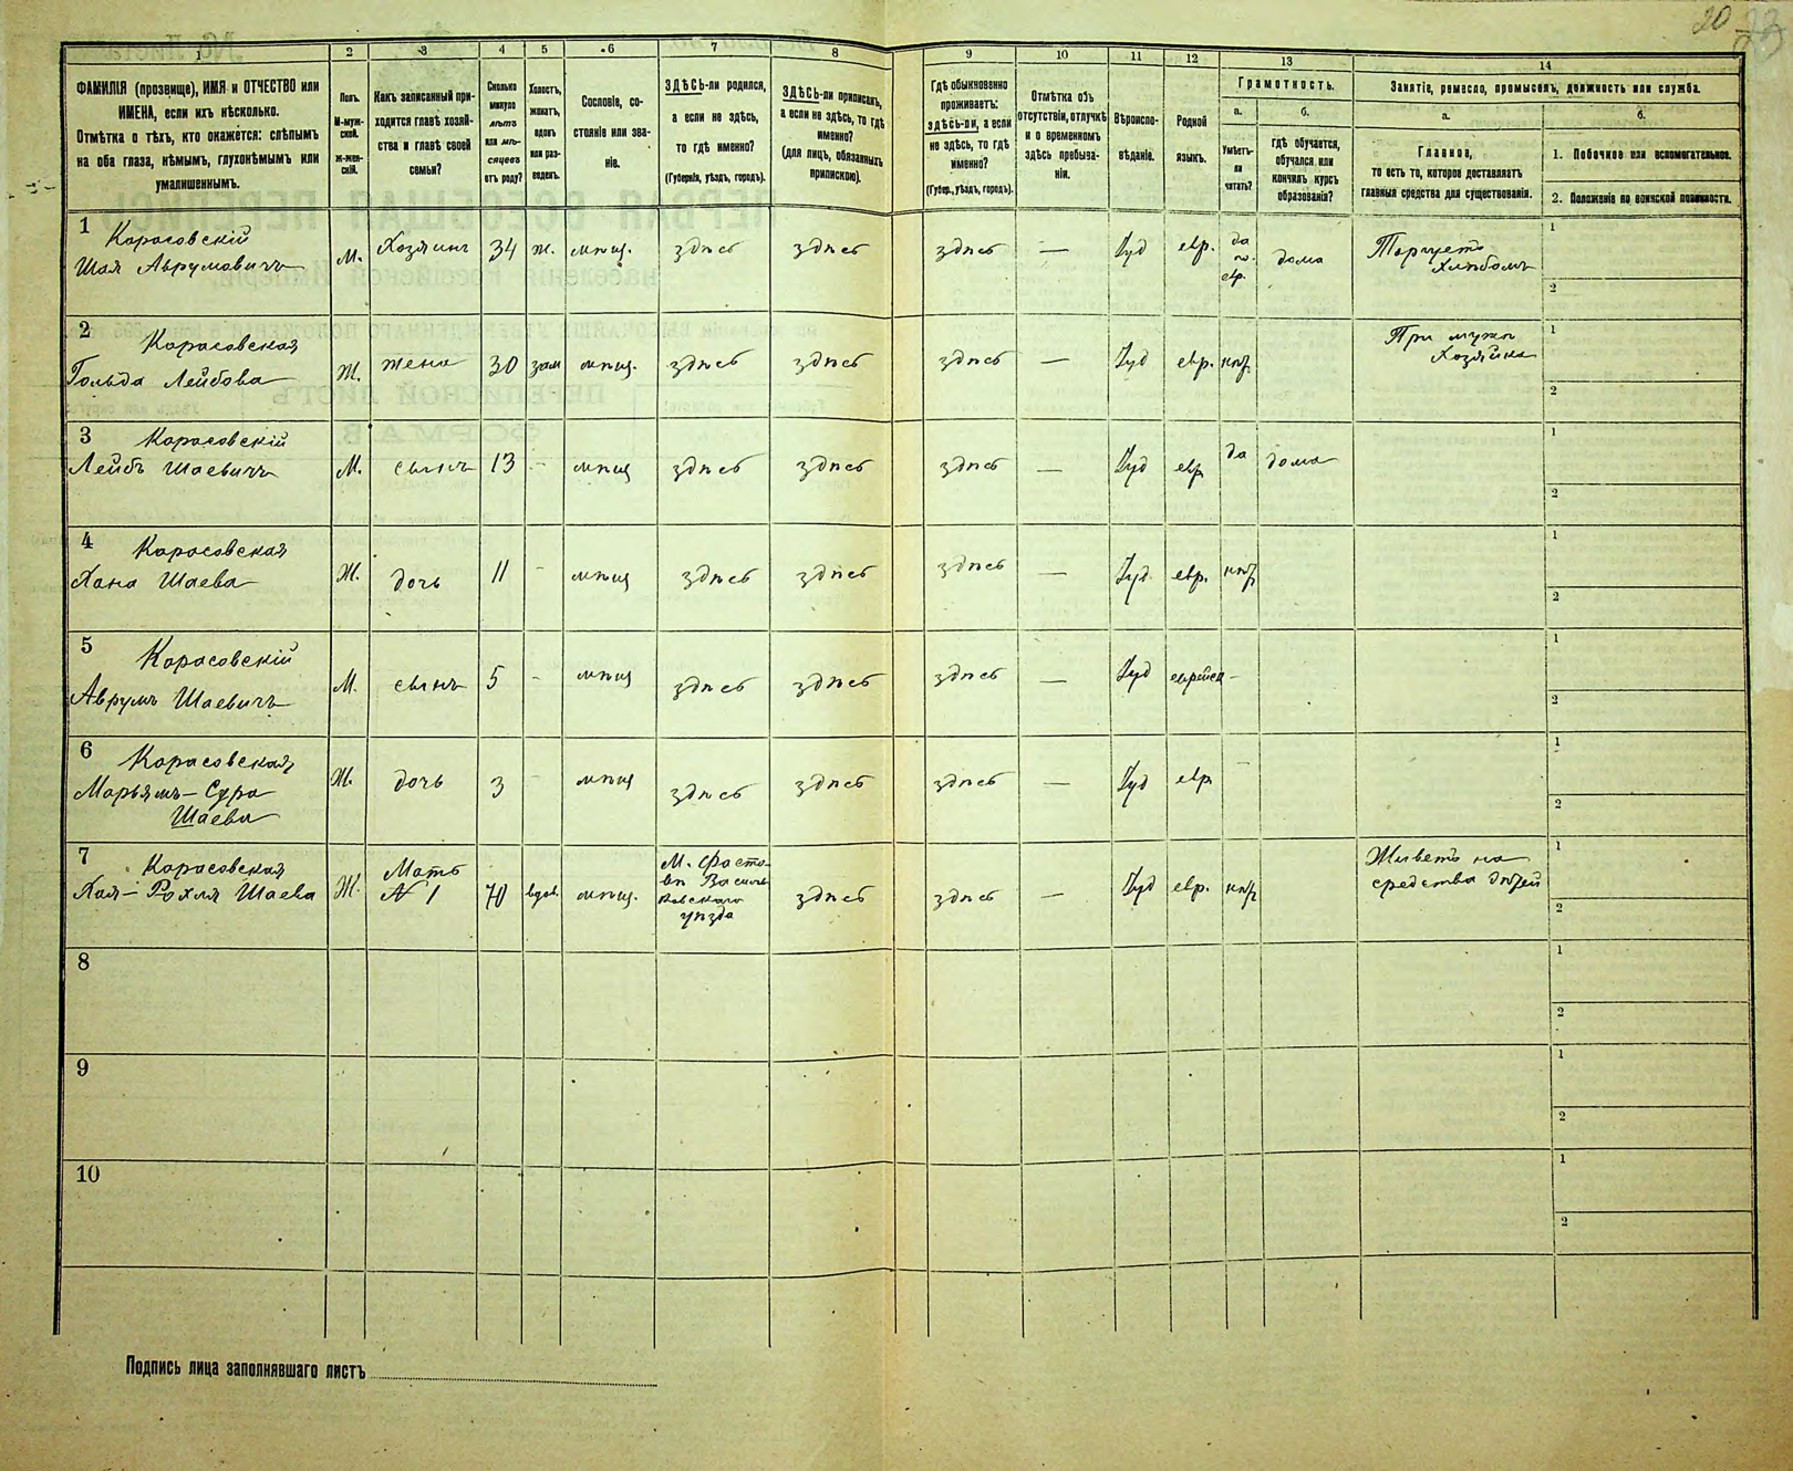 20 23
1 2 3 4 5 6 7 8 9 10 11 12 13 14
ФАМИЛІЯ (прозвище), ИМЯ и ОТЧЕСТВО или
ИМЕНА, если ихъ нѣсколько.
Отмѣтка о тѣхъ, кто окажется: слѣпымъ
на оба глаза, нѣмымъ, глухонѣмымъ или
умалишеннымъ.
Полъ.
М-муж-
ской.
ж-жен-
скій.
Какъ записанный при-
ходится главѣ хозяй-
ства и главѣ своей
семьи?
Сколько
минуло
лѣтъ
или мѣ-
сяцевъ
отъ роду?
Холостъ,
женатъ,
вдовъ
или раз-
веденъ.
Сословіе, со-
стояніе или зва-
ніе.
ЗДѢСЬ-ли родился,
а если не здѣсь,
то гдѣ именно?
(Губернія, уѣздъ, городъ).
ЗДѢСЬ-ли приписанъ,
а если не здѣсь, то гдѣ
именно?
(для лицъ, обязанныхъ
припискою).
Гдѣ обыкновенно
проживаетъ:
здѣсь-ли, а если
не здѣсь, то гдѣ
именно?
(Губер., уѣздъ, городъ).
Отмѣтка объ
отсутствіи, отлучкѣ
и о временномъ
здѣсь пребыва-
ніи.
Вѣроиспо-
вѣданіе.
Родной
языкъ.
Грамотность.
а.
Умѣетъ-
ли
читать?
б.
гдѣ обучается,
обучался или
кончилъ курсъ
образованія?
Занятіе, ремесло, промыселъ, должность или служба.
а.
Главное,
то есть то, которое доставляетъ
главныя средства для существованія.
б.
1. Побочное или вспомогательное.
2. Положеніе по воинской повинности.
1 Карасовскій
Шая Аврумовичъ М. Хозяинъ 34 ж. мѣщ. здѣсь здѣсь здѣсь — Іуд евр. да по евр. дома Торгуетъ хлѣбомъ
1
2
2 Карасовская
Гольда Лейбова Ж. жена 30 зам мѣщ. здѣсь здѣсь здѣсь — Іуд евр. нѣт При мужѣ хозяйка
1
2
3 Карасовскій
Лейбъ Шаевичъ М. сынъ 13 - мѣщ здѣсь здѣсь здѣсь — Іуд евр да дома
1
2
4 Карасовская
Хана Шаева Ж. дочь 11 - мѣщ здѣсь здѣсь здѣсь — Іуд. евр. нѣт
1
2
5 Карасовскій
Аврумъ Шаевичъ М. сынъ 5 - мѣщ здѣсь здѣсь здѣсь — Іуд еврейск -
1
2
6 Карасовская
Марьямъ-Сура
Шаева Ж. дочь 3 - мѣщ здѣсь здѣсь здѣсь — Іуд евр —
1
2
7 Карасовская
Хая-Рохля Шаева Ж. Мать № 1 70 вдов. мѣщ. М. Фасто-
вѣ Василь-
ковскаго
уѣзда здѣсь здѣсь — Іуд евр. нѣт Живетъ на
средства дѣтей
1
2
8
1
2
9
1
2
10
1
2
Подпись лица заполнявшаго листъ